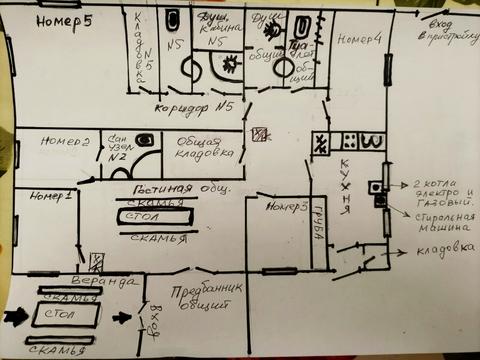 Номер 5
Кладовка N5
N5
Душ. кабина
N5
Душ
общий
Туалет общий
Номер 4
вход
в пристройку
Коридор N5
Номер 2
Сан
узел
N2
Общая
кладовка
КУХНЯ
2 котла
электро и
газовый.
стиральная
машина
кладовка
Номер 1
Гостиная общ.
СКАМЬЯ
СТОЛ
СКАМЬЯ
Номер 3
ГРУБА
Веранда
СКАМЬЯ
СТОЛ
СКАМЬЯ
Вход
Предбанник
общий